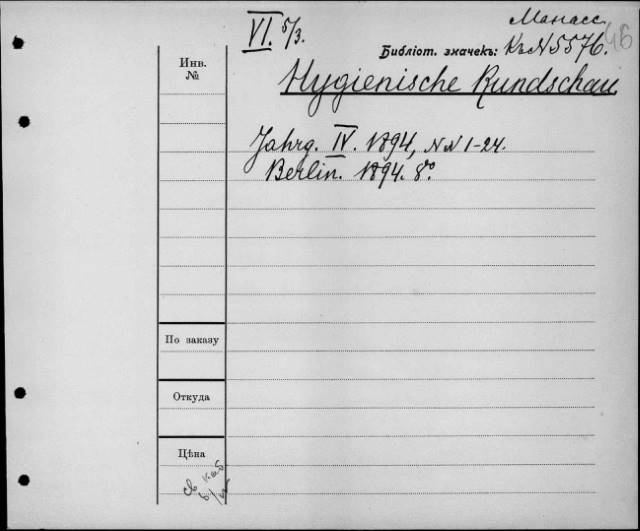 VI. 5/3.
Манасс.
46
Библіот. значекъ: Къ N 5576.
Инв. №
Hygienische Rundschau
Jahrg. IV. 1894, NN 1-24.
Berlin. 1894. 8º.
По заказу
Откуда
Цѣна